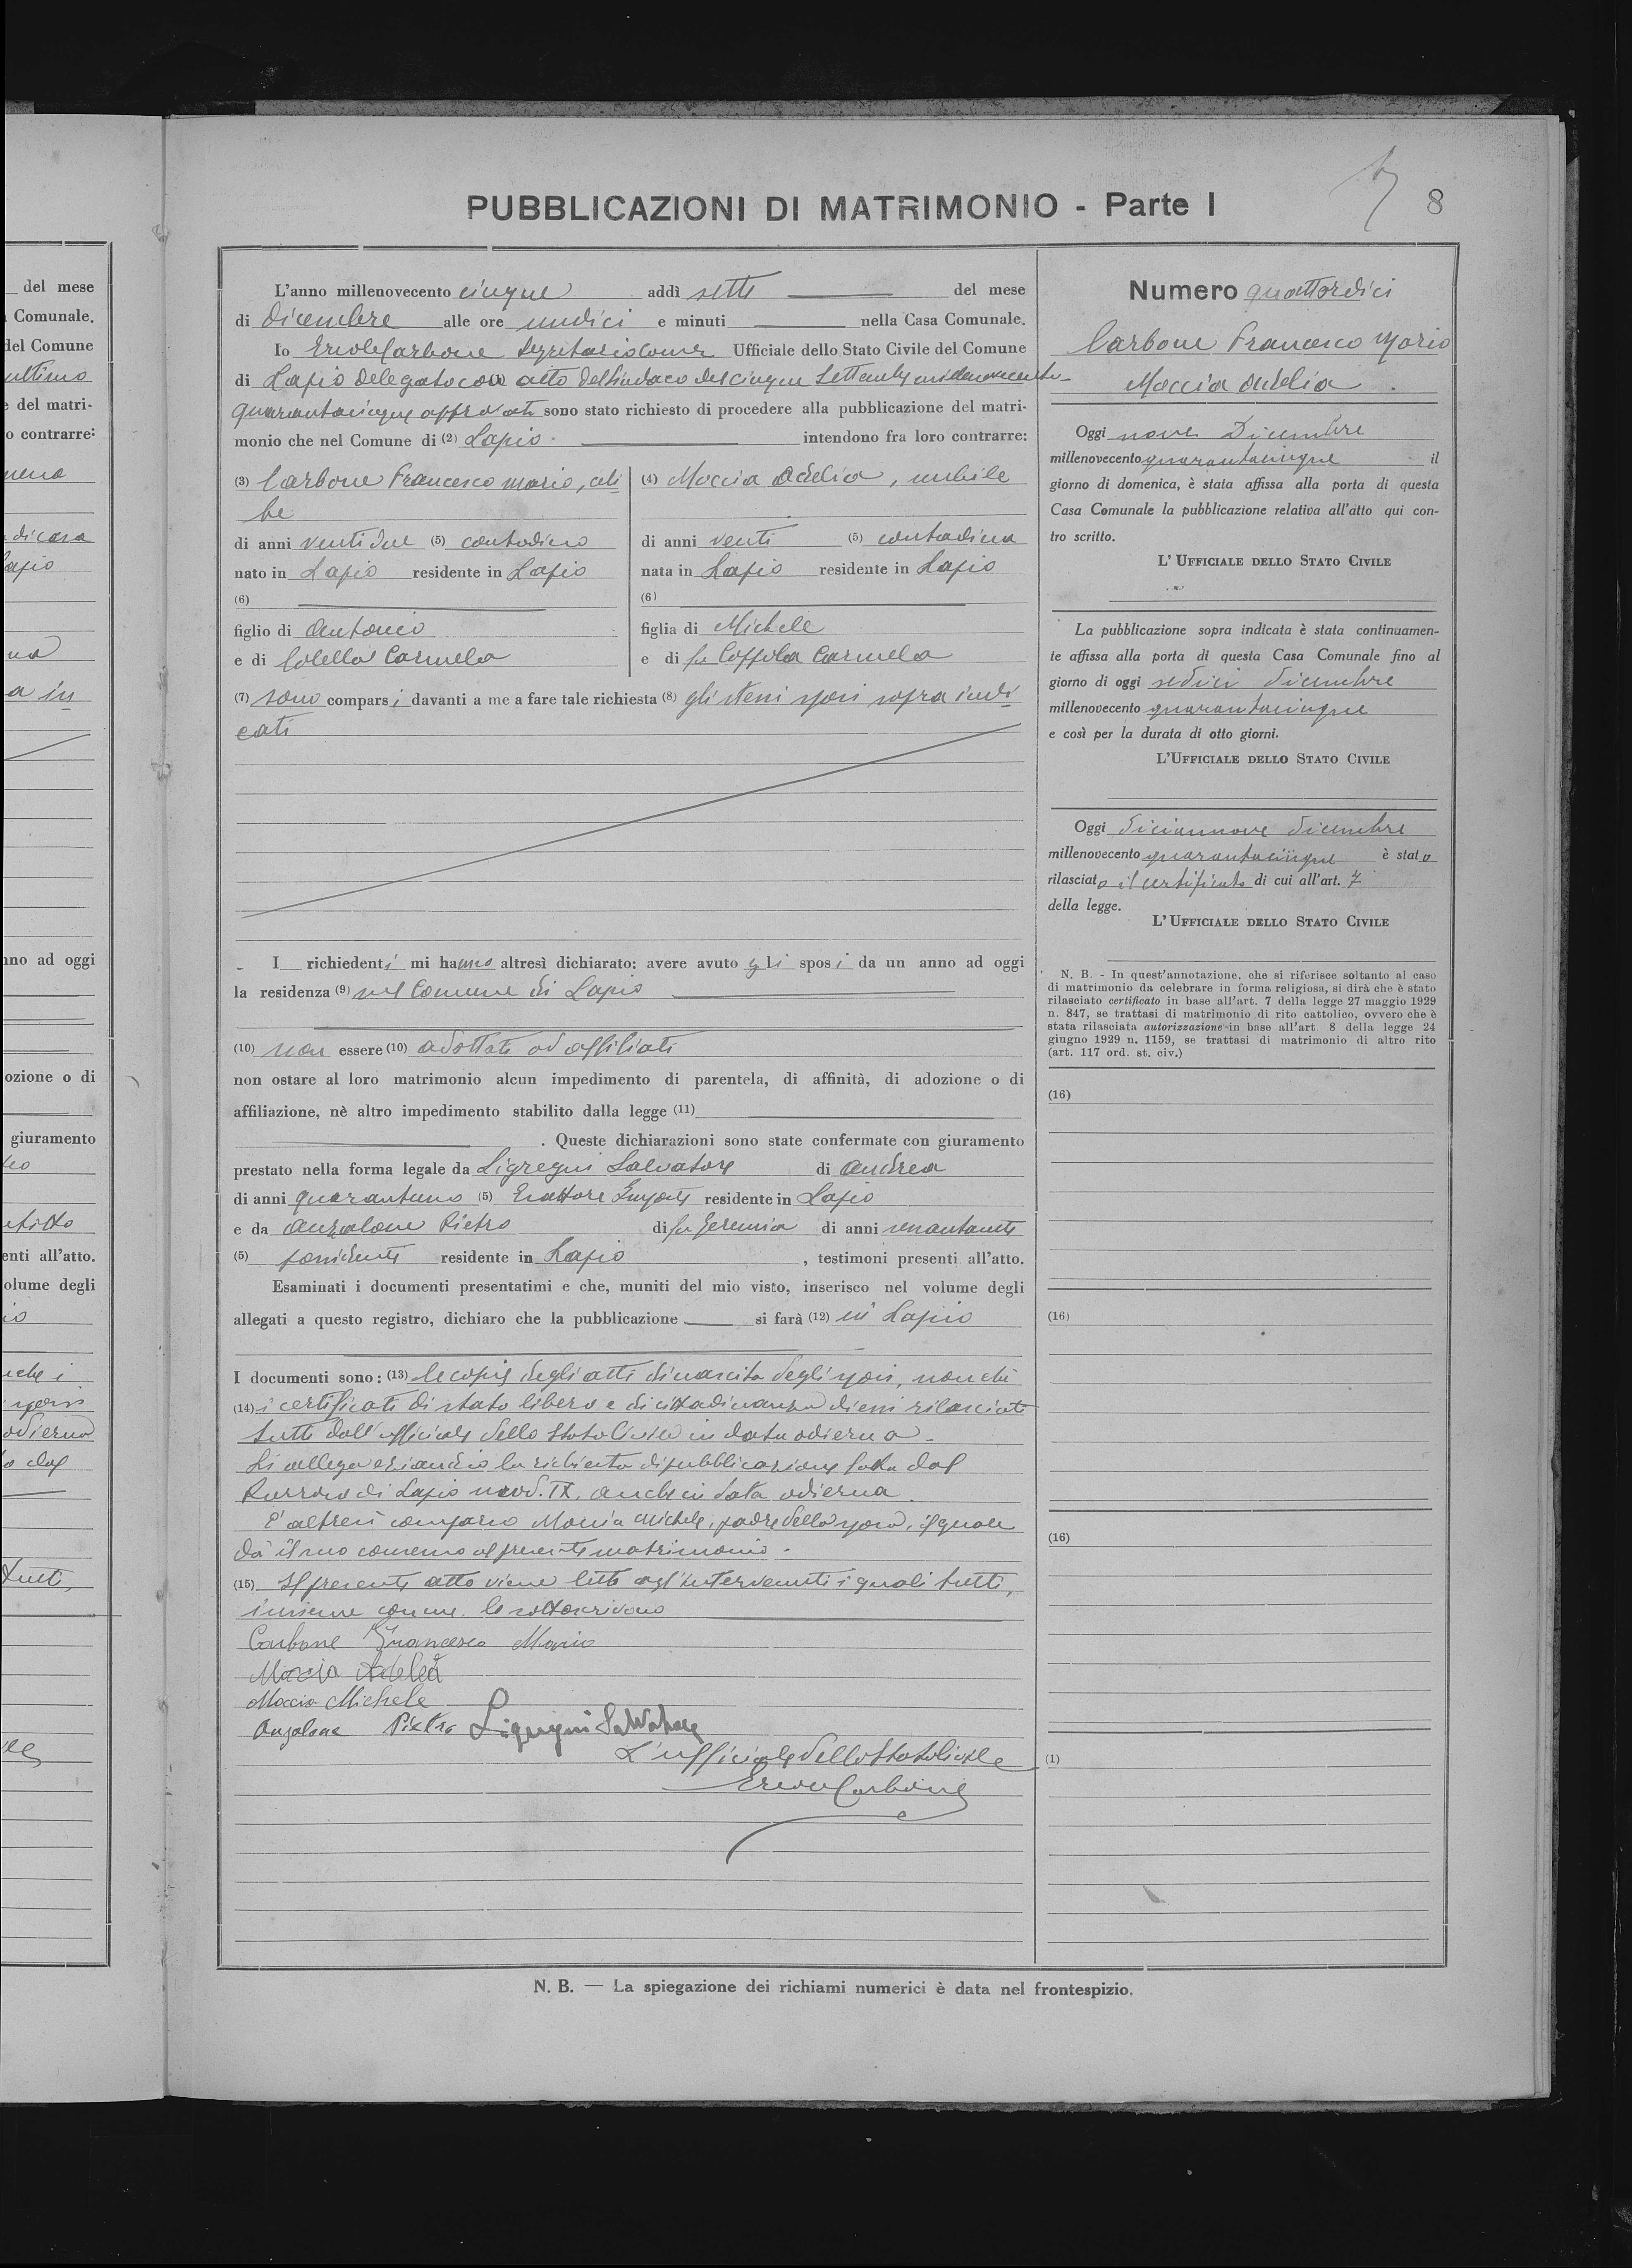 PUBBLICAZIONI DI MATRIMONIO - Parte I
8
L'anno millenovecento cinque addì sette del mese
di dicembre alle ore undici e minuti nella Casa Comunale.
Io Ercole Carbone Segretario Comle Ufficiale dello Stato Civile del Comune
di Lapio delegato con atto del Sindaco del cinque Settembre millenovecento-
quarantacinque approvato sono stato richiesto di procedere alla pubblicazione del matri-
monio che nel Comune di (2) Lapio. intendono fra loro contrarre:
(3) Carbone Francesco Mario, celi
be
di anni ventidue (5) contadino
nato in Lapio residente in Lapio
(6)
figlio di Antonio
e di Colella Carmela
(4) Moccia Adelia, nubile
di anni venti (5) contadina
nata in Lapio residente in Lapio
(6)
figlia di Michele
e di fu Coppola Carmela
(7) sono comparsi davanti a me a fare tale richiesta (8) gli stessi sposi sopra indi
cati
I richiedenti mi hanno altresì dichiarato: avere avuto gli sposi da un anno ad oggi
la residenza (9) nel Comune di Lapio
(10) non essere (10) adottati od affiliati
non ostare al loro matrimonio alcun impedimento di parentela, di affinità, di adozione o di
affiliazione, nè altro impedimento stabilito dalla legge (11)
. Queste dichiarazioni sono state confermate con giuramento
prestato nella forma legale da Ligregni Salvatore di Andrea
di anni quarantuno (5) Esattore Imposte residente in Lapio
e da Anzalone Pietro di fu Geremia di anni
(5) possidente residente in Lapio , testimoni presenti all'atto.
Esaminati i documenti presentatimi e che, muniti del mio visto, inserisco nel volume degli
allegati a questo registro, dichiaro che la pubblicazione si farà (12) in Lapio
I documenti sono: (13) le copie degli atti di nascita degli sposi, nonchè
(14) i certificati di stato libero e di cittadinanza di essi rilasciati
tutti dall'ufficiale dello Stato Civile in data odierna -
Si allega eziandio la richiesta di pubblicazione fatta dal
Parroco di Lapio mod. IX, anche in data odierna.
E' altresì comparso Moccia Michele, padre della sposa, il quale
dà il suo consenso al presente matrimonio.
(15) Il presente atto viene letto agl'intervenuti i quali tutti,
insieme con me lo sottoscrivono
Carbone Francesco Mario
Moccia Adelia
Moccia Michele
Anzalone Pietro Ligregni Salvatore
L'ufficiale dello Stato Civile
Ercole Carbone
Numero quattordici
Carbone Francesco Mario
Moccia Adelia.
Oggi nove Dicembre
millenovecento quarantacinque il
giorno di domenica, è stata affissa alla porta di questa
Casa Comunale la pubblicazione relativa all'atto qui con-
tro scritto.
L'UFFICIALE DELLO STATO CIVILE
La pubblicazione sopra indicata è stata continuamen-
te affissa alla porta di questa Casa Comunale fino al
giorno di oggi sedici dicembre
millenovecento quarantacinque
e così per la durata di otto giorni.
L'UFFICIALE DELLO STATO CIVILE
Oggi diciannove dicembre
millenovecento quarantacinque è stato
rilasciato il certificato di cui all'art. 7
della legge.
L'UFFICIALE DELLO STATO CIVILE
N. B. - In quest'annotazione, che si riferisce soltanto al caso
di matrimonio da celebrare in forma religiosa, si dirà che è stato
rilasciato certificato in base all'art. 7 della legge 27 maggio 1929
n. 847, se trattasi di matrimonio di rito cattolico, ovvero che è
stata rilasciata autorizzazione in base all'art. 8 della legge 24
giugno 1929 n. 1159, se trattasi di matrimonio di altro rito
(art. 117 ord. st. civ.)
(16)
(16)
(16)
(1)
N. B. — La spiegazione dei richiami numerici è data nel frontespizio.